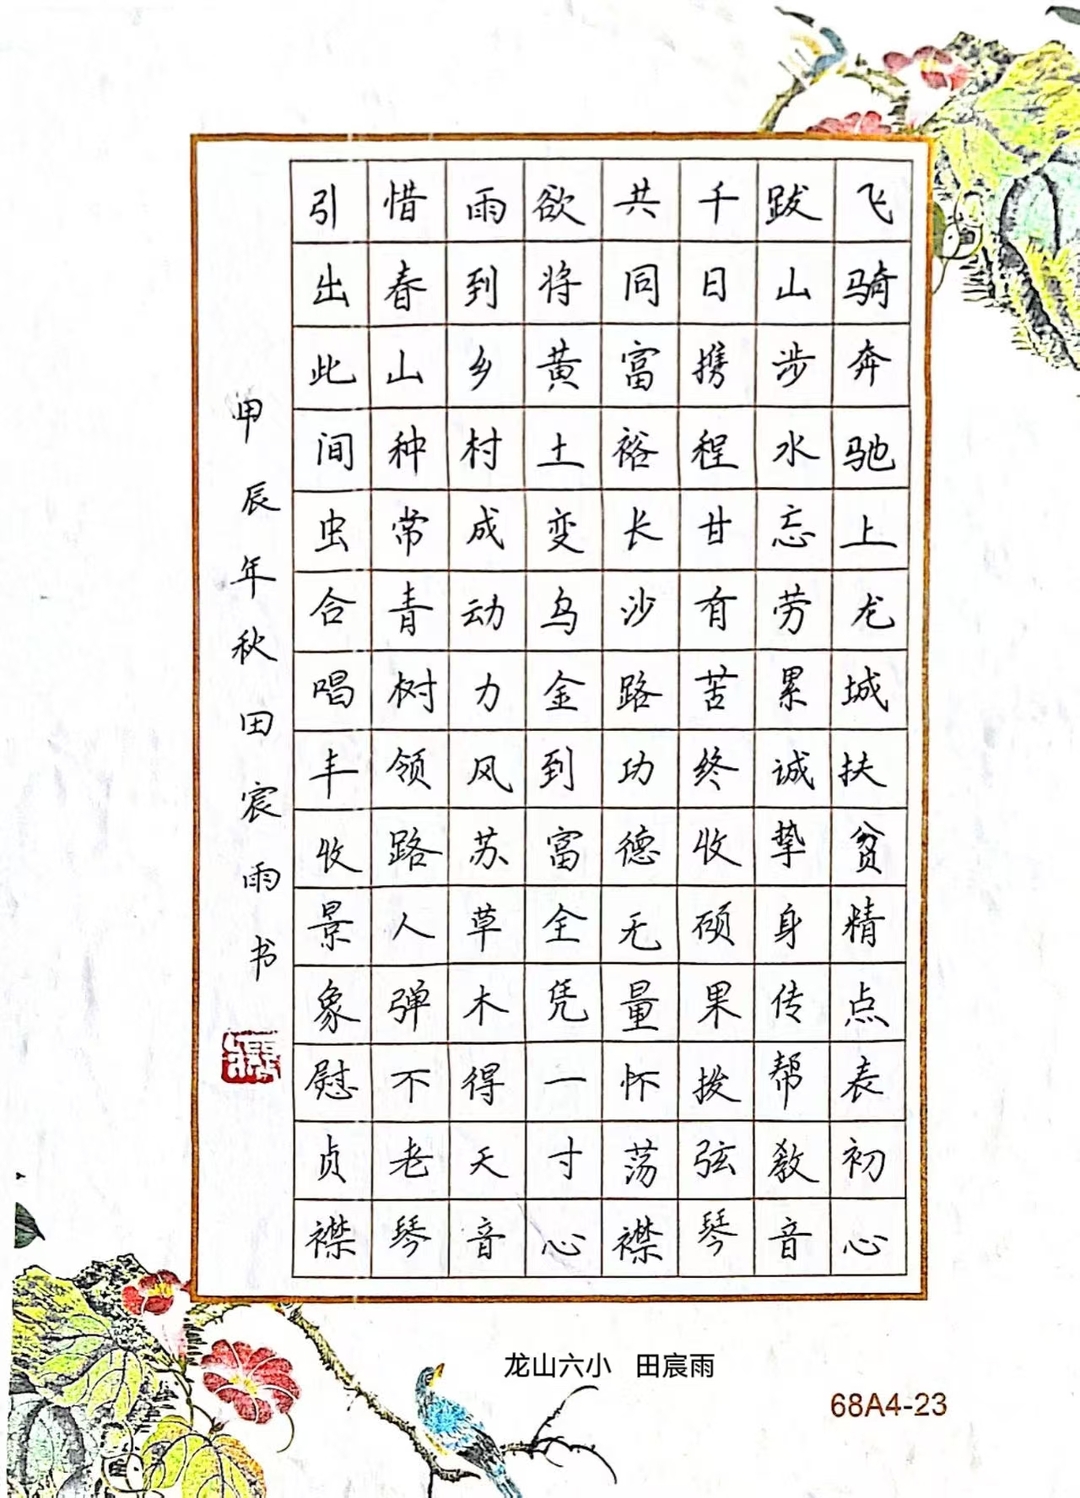 飞骑奔驰上龙城扶贫精点表初心
跋山涉水忘劳累诚挚身传帮教音
千日携程甘有苦终收硕果拨弦琴
共同富裕长沙路功德无量怀荡襟
欲将黄土变乌金到富全凭一寸心
雨到乡村成动力风苏草木得天音
惜春山种常青树领路人弹不老琴
引出此间虫合唱丰收景象慰贞襟
甲辰年秋田宸雨书
龙山六小 田宸雨
68A4-23